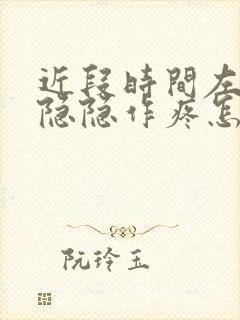 近段時間左
隐隐作疼怎
阮玲玉